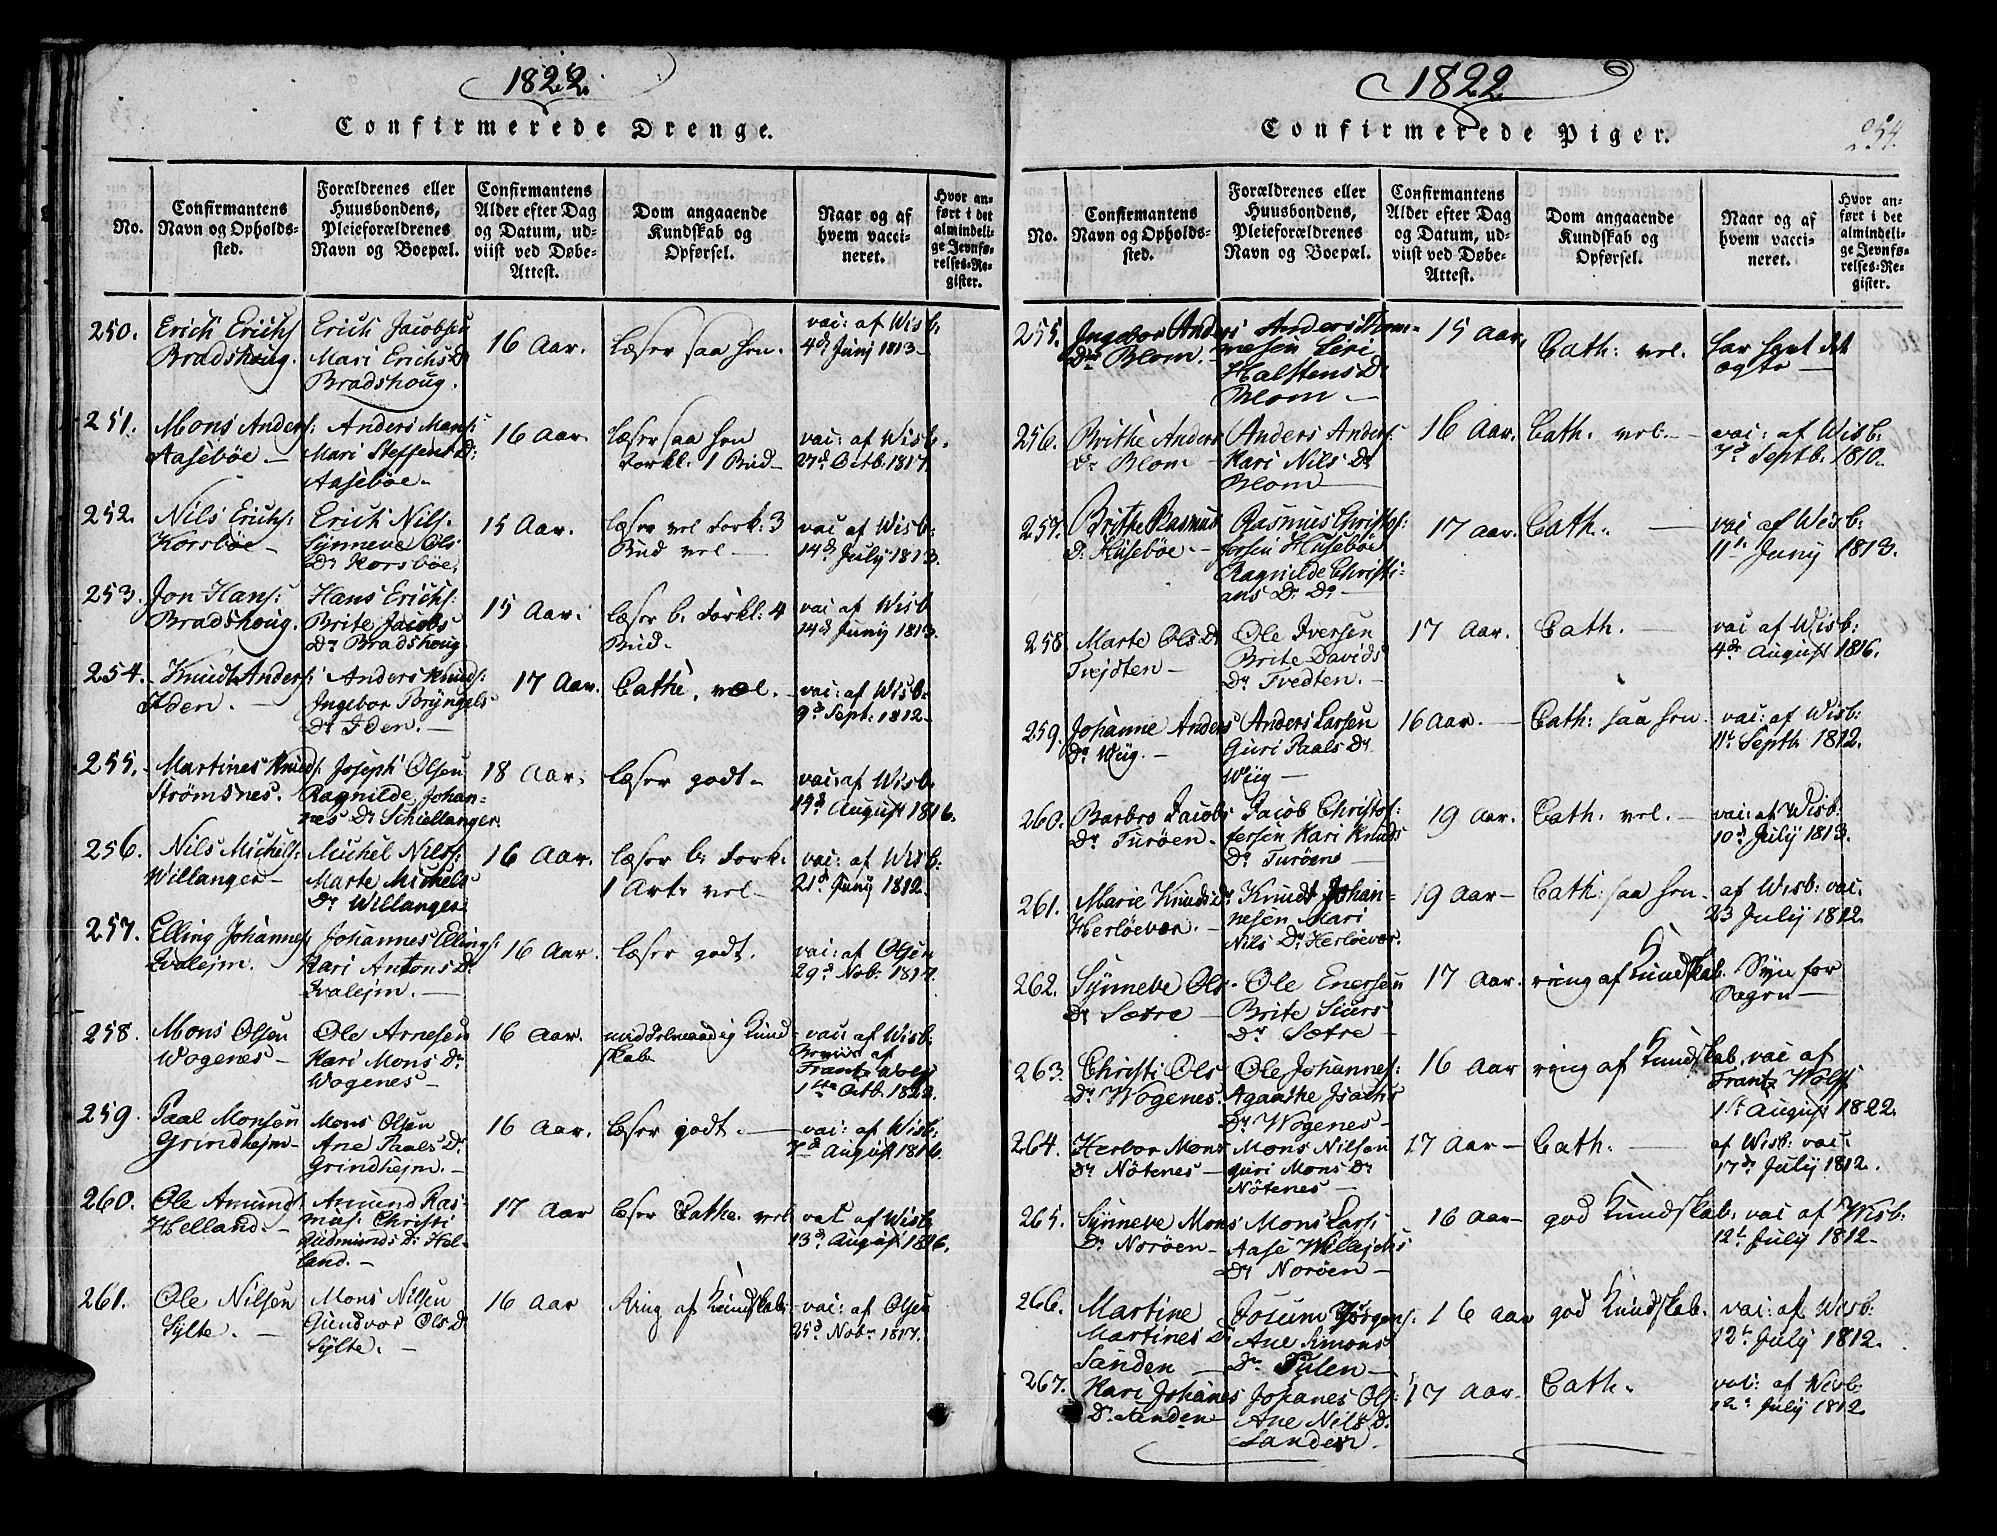 1822.
Confirmerede Drenge.
No.
Confirmantens
Navn og Opholds-
sted.
Forældrenes eller
Huusbondens,
Pleieforældrenes
Navn og Boepæl.
Confirmantens
Alder efter Dag
og Datum, ud-
viist ved Døbe-
Attest.
Dom angaaende
Kundskab og
Opførsel.
Naar og af
hvem vacci-
neret.
Hvor an-
ført i det
almindeli-
ge Jevnfø-
relses-Re-
gister.
250.
Erich Erichs
Bradshoug.
Erich Jacobsen
Mari Erichs Dr
Bradshoug.
16 Aar.
læser saa hen.
vac: af Wisb:
4de Junÿ 1813
251.
Mons Anders:
Aasebøe
Anders Mans:
Mari Steffens Dr:
Aasebøe
16 Aar.
læser saa hen
Forkl. 1 Bud
vac: af Wisb.
27d Octb. 1817.
252.
Nils Erichs:
Korsbøe
Erich Nils.
Sÿnneve Ols
Dr Korsbøe.
15 Aar.
læser vel Fork: 3
Bud vel
vac af Wisb:
14de Julÿ 1813.
253.
Jon Hans:
Bradshoug.
Hans Erichs:
Brite Jacobs
Dr Bradshoug.
15 Aar.
læser b. Forkl: 4
Bud.
vac af Wisb
14de Junÿ 1813.
254.
Knudt Anders
Iden.
Anders Knuds:
Ingebor Brÿngels
Dr Iden.
17 Aar.
Cathe, vel.
vac: af Wisb:
9d Sept: 1812
255.
Martines Knuds:
Strømsnes.
Joseph Olsen
Ragnilde Johan-
nes Dr Schiellanger.
18 Aar.
læser godt
vac: af Wisb.
14d August 1816.
256.
Nils Michels:
Willanger
Michel Nils:
Marte Michels
Dr Willanger
16 Aar.
læser b. Fork:
1 Art. vel
vac: af Wisb:
21d Junÿ 1812.
257.
Elling Johannes
Evalejm.
Johannes Ellings:
Kari Antons Dr
Evalejm.
16 Aar.
læser godt.
vac: af Olsen
29d Nob: 1817.
258.
Mons Olsen
Wogenes
Ole Arnesen
Kari Mons Dr
Wogenes
16 Aar.
middelmaadig Kund
skab
vac: af Wisb:
af
Frantz Wolf
1ste Octb. 1822.
259.
Paal Monsen
Grindhejm
Mons Olsen
Ane Paals Dr
Grindhejm.
16 Aar.
læser godt.
vac: af Wisb:
7d August 1816.
260.
Ole Amunds
Helland.
Amund Ras-
mus: Christi
Gudmunds Dr Hel-
land.
17 Aar
læser Cathe. vel
vac af Wisb
13d August 1816.
261.
Ole Nilsen
Sÿlte.
Mons Nilsen
Gundvor Ols Dr
Sÿlte.
16 Aar
Ring af Kundskab:
vac: af Olsen
25d Nobr 1817.
1822
Confirmerede Piger.
254.
No.
Confirmantens
Navn og Opholds-
sted.
Forældrenes eller
Huusbondens,
Pleieforældrenes
Navn og Boepæl.
Confirmantens
Alder efter Dag
og Datum, ud-
viist ved Døbe-
Attest.
Dom angaaende
Kundskab og
Opførsel.
Naar og af
hvem vacci-
neret.
Hvor an-
ført i det
almindeli-
ge Jevnfø-
relses-Re-
gister.
255.
Ingebor Anders
Dr Blom.
Anders
mesen Siri
Halstens Dr
Blom.
15 Aar.
Cath: vel.
har havt det
ægte
256.
Brithe Anders
Dr Blom
Anders Anders:
Kari Nils Dr
Blom
16 Aar.
Cath. vel.
vac: af Wisb:
7d Septb. 1810.
257.
Brithe Rasmus
Dr Husebøe.
Rasmus Christof:
fersen Husebøe
Ragnilde Christi-
ans Dr Do
17 Aar.
Cath.
vac af Wisb:
11te Junÿ 1813.
258
Marte Ols Dr
Tvejten
Ole Iversen
Brite Davids
Dr Tvedten.
17 Aar.
Cath.
vac af Wisb:
4de August 1816.
259.
Johanne Anders
Dr Wiig.
Anders Larsen
Guri Paals Dr
Wiig
16 Aar.
Cath: saa hen
vac: af Wisb:
11te Septb 1812.
260.
Barbro Jacobs
Dr Turøen.
Jacob Christof:
fersen Kari Knuds
Dr Turøens
19 Aar.
Cath: vel.
vac: af Wisb:
10d Julÿ 1813.
261.
Marie Knuds Dr
Herløevær.
Knudt Johan-
nesen Mari
Nils Dr Herløevær.
19 Aar
Cath: saa hen
af Wisb: vac.
23 Julÿ 1812.
262.
Sÿnneve Ols
Dr Sætre
Ole Enersen
Brite Siurs
Dr Sætre
17 Aar.
ring af Kundskab.
Syn for
Sagen
263.
Christi Ols
Dr Wogenes.
Ole Johannes:
Agaathe Isachs
Dr Wogenes
16 Aar
ring af Kundskab.
vac af
Frantz Wolf
1st August 1822.
264.
Herbor Mons
Dr Nötenes
Mons Nilsen
Guri Mons Dr
Nötenes
17 Aar
Cath:
af Wisb: vac:
17de Julÿ 1812.
265.
Sÿnneve Mons
Dr Norøen
Mons Lars:
Aase Willejchs
Dr Norøen
16 Aar
god Kundskab:
vac af Wisb:
12te Julÿ 1812
266.
Martine
Martines Dr
Sanden
Josum Jörgens:
Ane Simons
Dr Tulen
16 Aar
god Kundskab.
vac: af Wisb:
12te Julÿ 1812.
267.
Kari Johanes
Dr Sanden
Johanes Ols:
Ane Nils Dr.
Sanden.
17 Aar.
Cath.
vac: af Wisb:
12d Julÿ 1812.